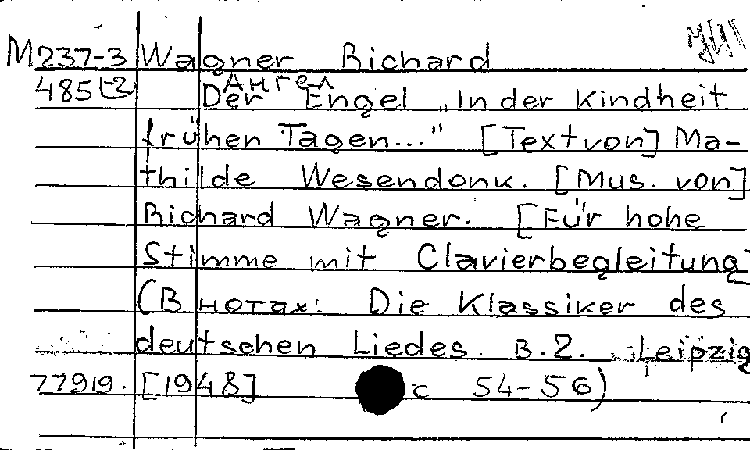 M237-3 Wagner Richard
485(2 Ангел
Der Engel „In der Kindheit
frühen Tagen..." [Text von] Ma-
thilde Wesendonk. [Mus. von]
Richard Wagner. [Für hohe
Stimme mit Clavierbegleitung]
(В нотах: Die Klassiker des
deutschen Liedes. B.2. Leipzig
77919. [1948] с 54-56)